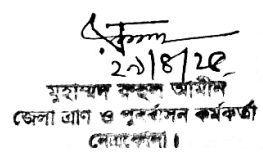 ২৭|৪|২৫
মুহাম্মদ রুহুল আমীন
জেলা ত্রাণ ও পুনর্বাসন কর্মকর্তা
নেত্রকোনা।